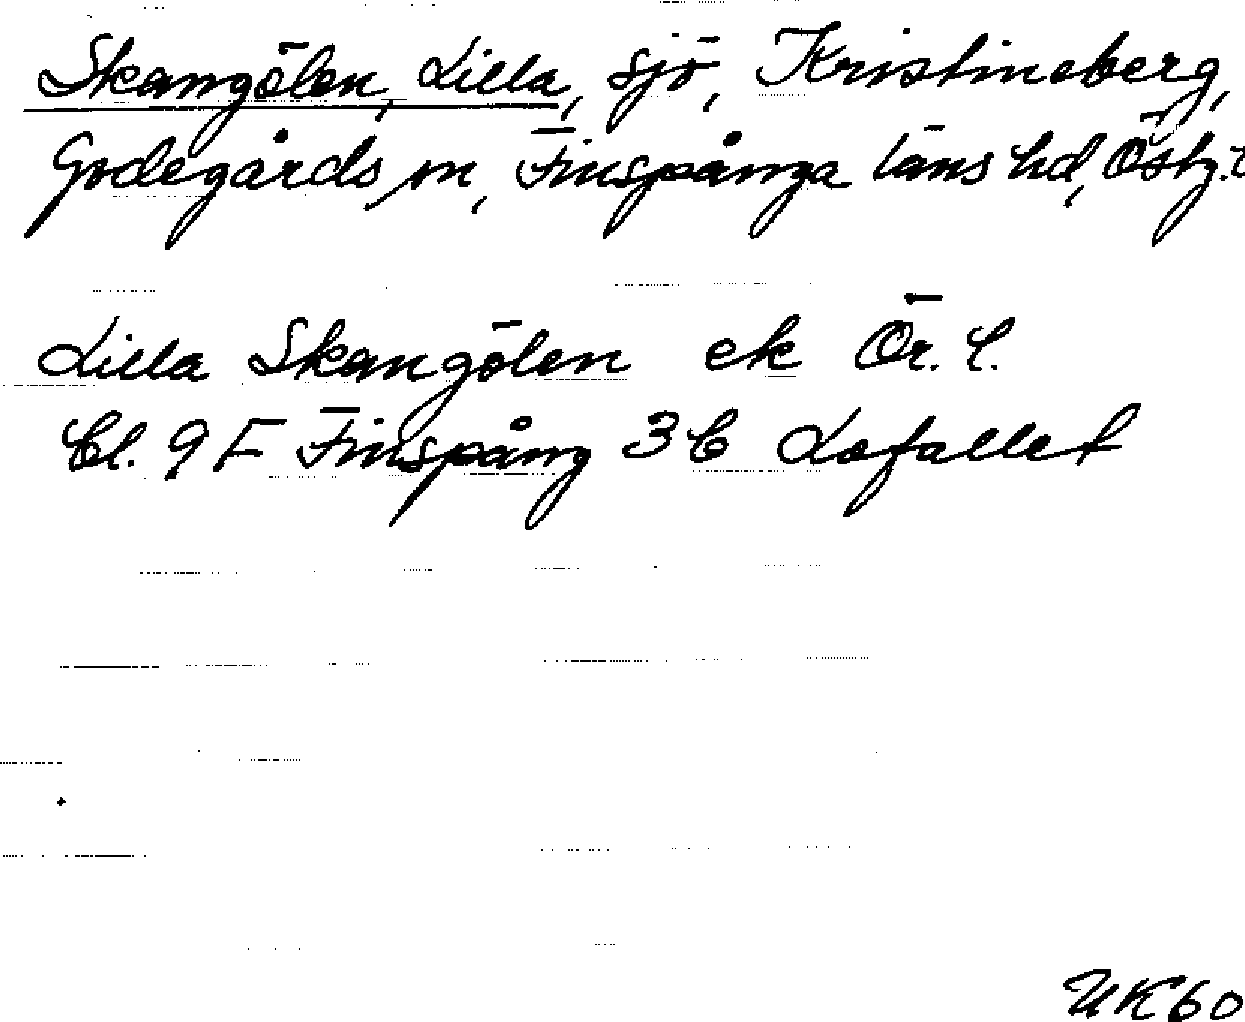 Skangölen, Lilla, sjö, Kristineberg,
Godegårds sn, Finspånga läns hd, Östg. l
Lilla Skangölen ek Ör. l.
bl. 9 F Finspång 3 b Lofallet
UK60